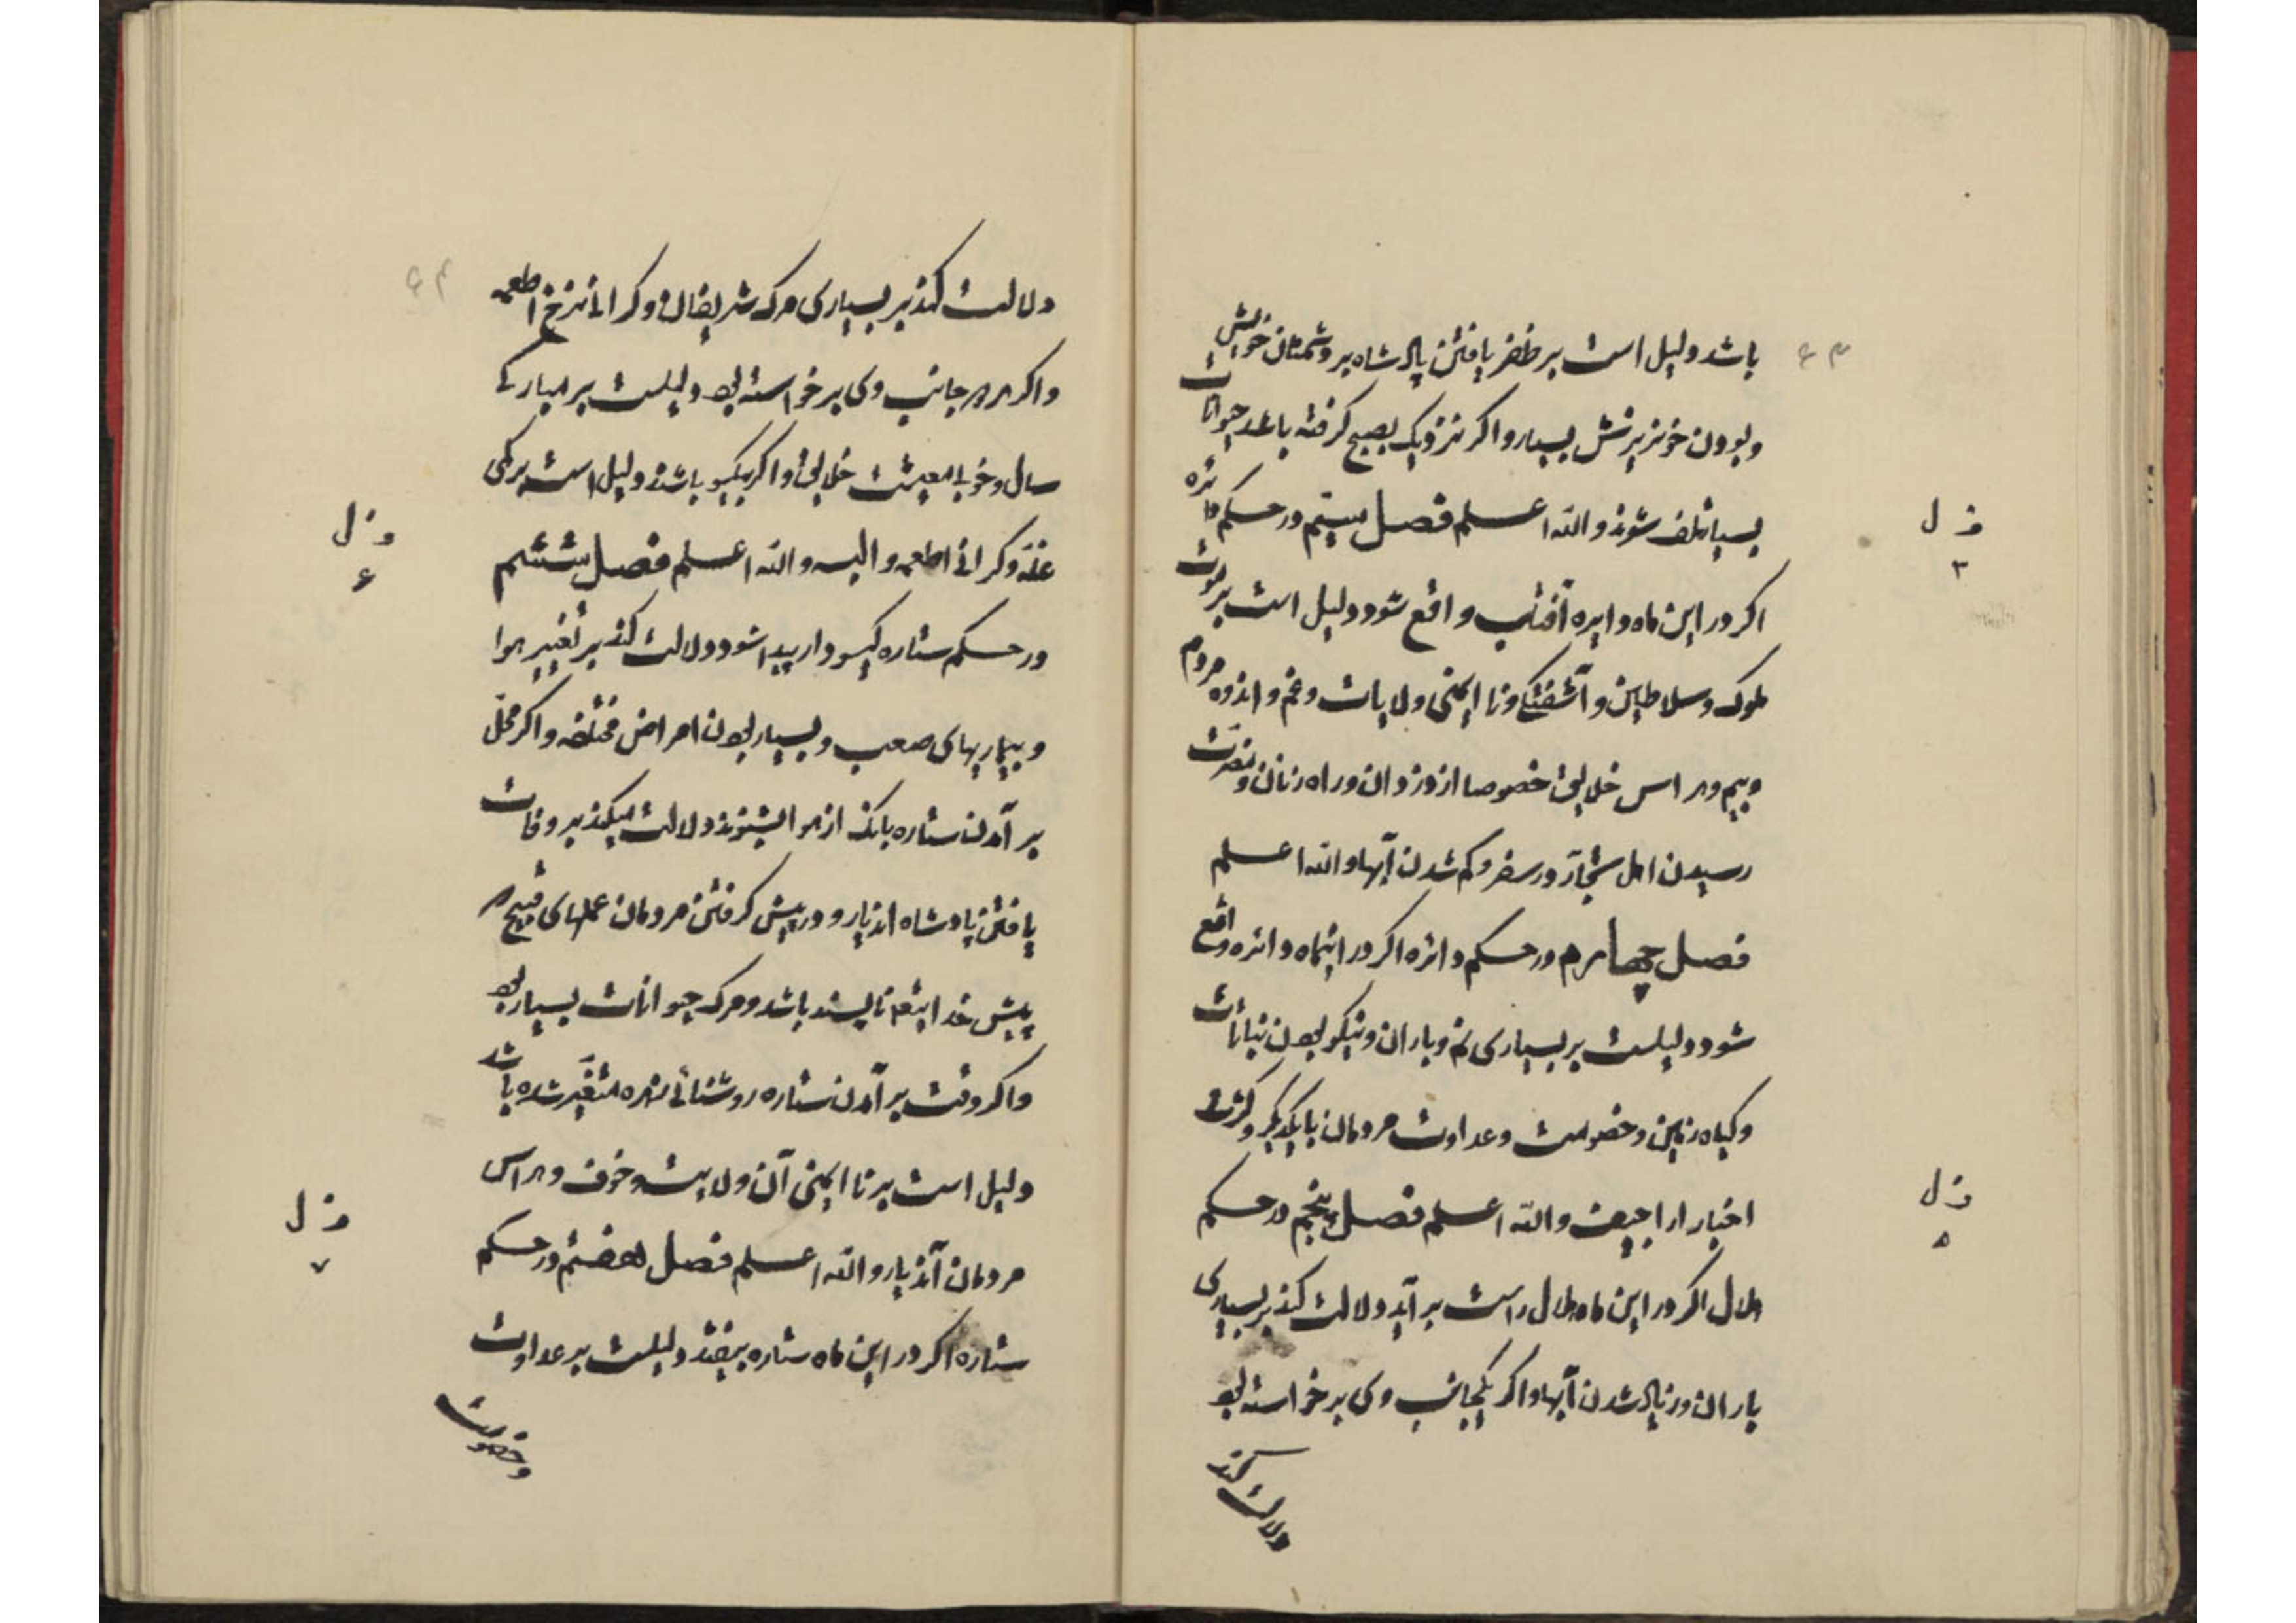 باشد دلیل است بر ظفر یافتن پادشاه بر دشمنان خویش
و بودن خونریزش بسیار و اگر نزدیک بصبح گرفته باشد حیوانات
بسیار تلف شوند والله اعلم فصل سیّم در حکم دائره
اگر در این ماه دایره آفتاب واقع شود دلیل است بر موت
ملوک و سلاطین و آشفتگی و نا ایمنی ولایات و غم و اندوه مردم
و بیم و هراس خلایق خصوصا از دزدان و راه زنان و مضرت
رسیدن اهل تجار در سفر و کم شدن آبها والله اعلم
فصل چهارم در حکم دائره اگر در اینماه دائره واقع
شود دلیلست بر بسیاری نم و باران و نیکو بودن نباتات
و گیاه زمین و خصومت و عداوت مردمان با یکدیگر و کثرت
اخبار اراجیف والله اعلم فصل پنجم در حکم
هلال اگر در این ماه هلال راست بر آید دلالت کند بر بسیاری
باران و زیاد شدن آبها و اگر یکجانب وی بر خواسته بود
دلالت کند
ف ل
۳
ف ل
۵
دلالت کند بر بسیاری مرگ شریفان و گرانی نرخ اطعمه
و اگر هر دو جانب وی بر خواسته بود دلیلست بر مبارکی
سال و خوبی معیشت خلایق و اگر یکسو باشد دلیل است بر کمی
غله و گرانی اطعمه و البسه والله اعلم فصل ششم
در حکم ستاره گیسو دار پیدا شود دلالت کند بر تغییر هوا
و بیماریهای صعب و بسیار بودن امراض مختلفه و اگر محلّ
بر آمدن ستاره بانگ از هوا بشنوند دلالت میکند بر وفات
یافتن پادشاه اندیار و در پیش گرفتن مردمان عملهای قبیح
پیش خدایتعم ناپسند باشد و مرگ حیوانات بسیار بود
و اگر وقت بر آمدن ستاره روشنائی زهره متغیّر شده باشد
دلیل است بر نا ایمنی آن ولایت و خوف و هراس
مردمان آندیار والله اعلم فصل هفتم در حکم
ستاره اگر در این ماه ستاره بیفتد دلیلست بر عداوت
و خصومت
ف ل
۶
ف ل
۷